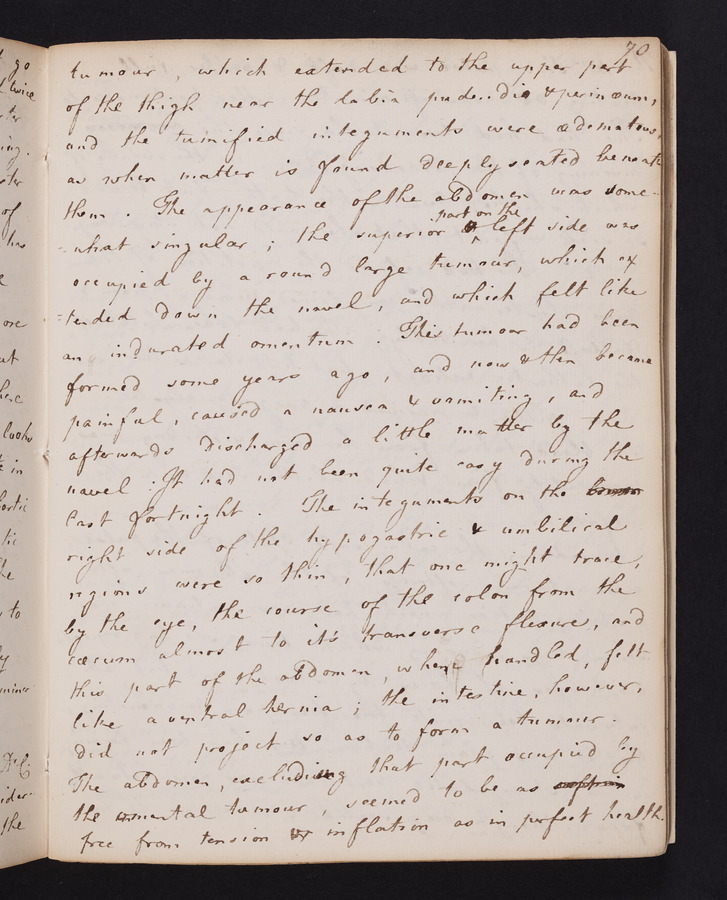 70
tumour, which extended to the upper part
of the thigh near the labia pude..dia & perinæum,
and the tumified integuments were ædematous,
as when matter is found deeply seated beneath
them. The appearance of the abdomen was some-
-what singular; the superior part on the left side was
occupied by a round large tumour, which ex
-tended down the navel, and which felt like
an indurated omentum. This tumour had been
formed some years ago, and now & then became
painful, caused a nausea & vomiting, and
afterwards discharged a little matter by the
navel. It had not been quite easy during the
last fortnight. The integuments on the
right side of the hypogastric & umbilical
regions were so thin, that one might trace,
by the eye, the course of the colon from the
cæcum almost to it's transverse flexure, and
this part of the abdomen, when handled, felt
like a ventral hernia; the intestine, however,
did not project so as to form a tumour.
The abdomen, excluding that part occupied by
the omental tumour, seemed to be as
free from tension or inflation as in perfect health.
go
twice
ing.
of
has
ore
at
looks
in
the
to
the